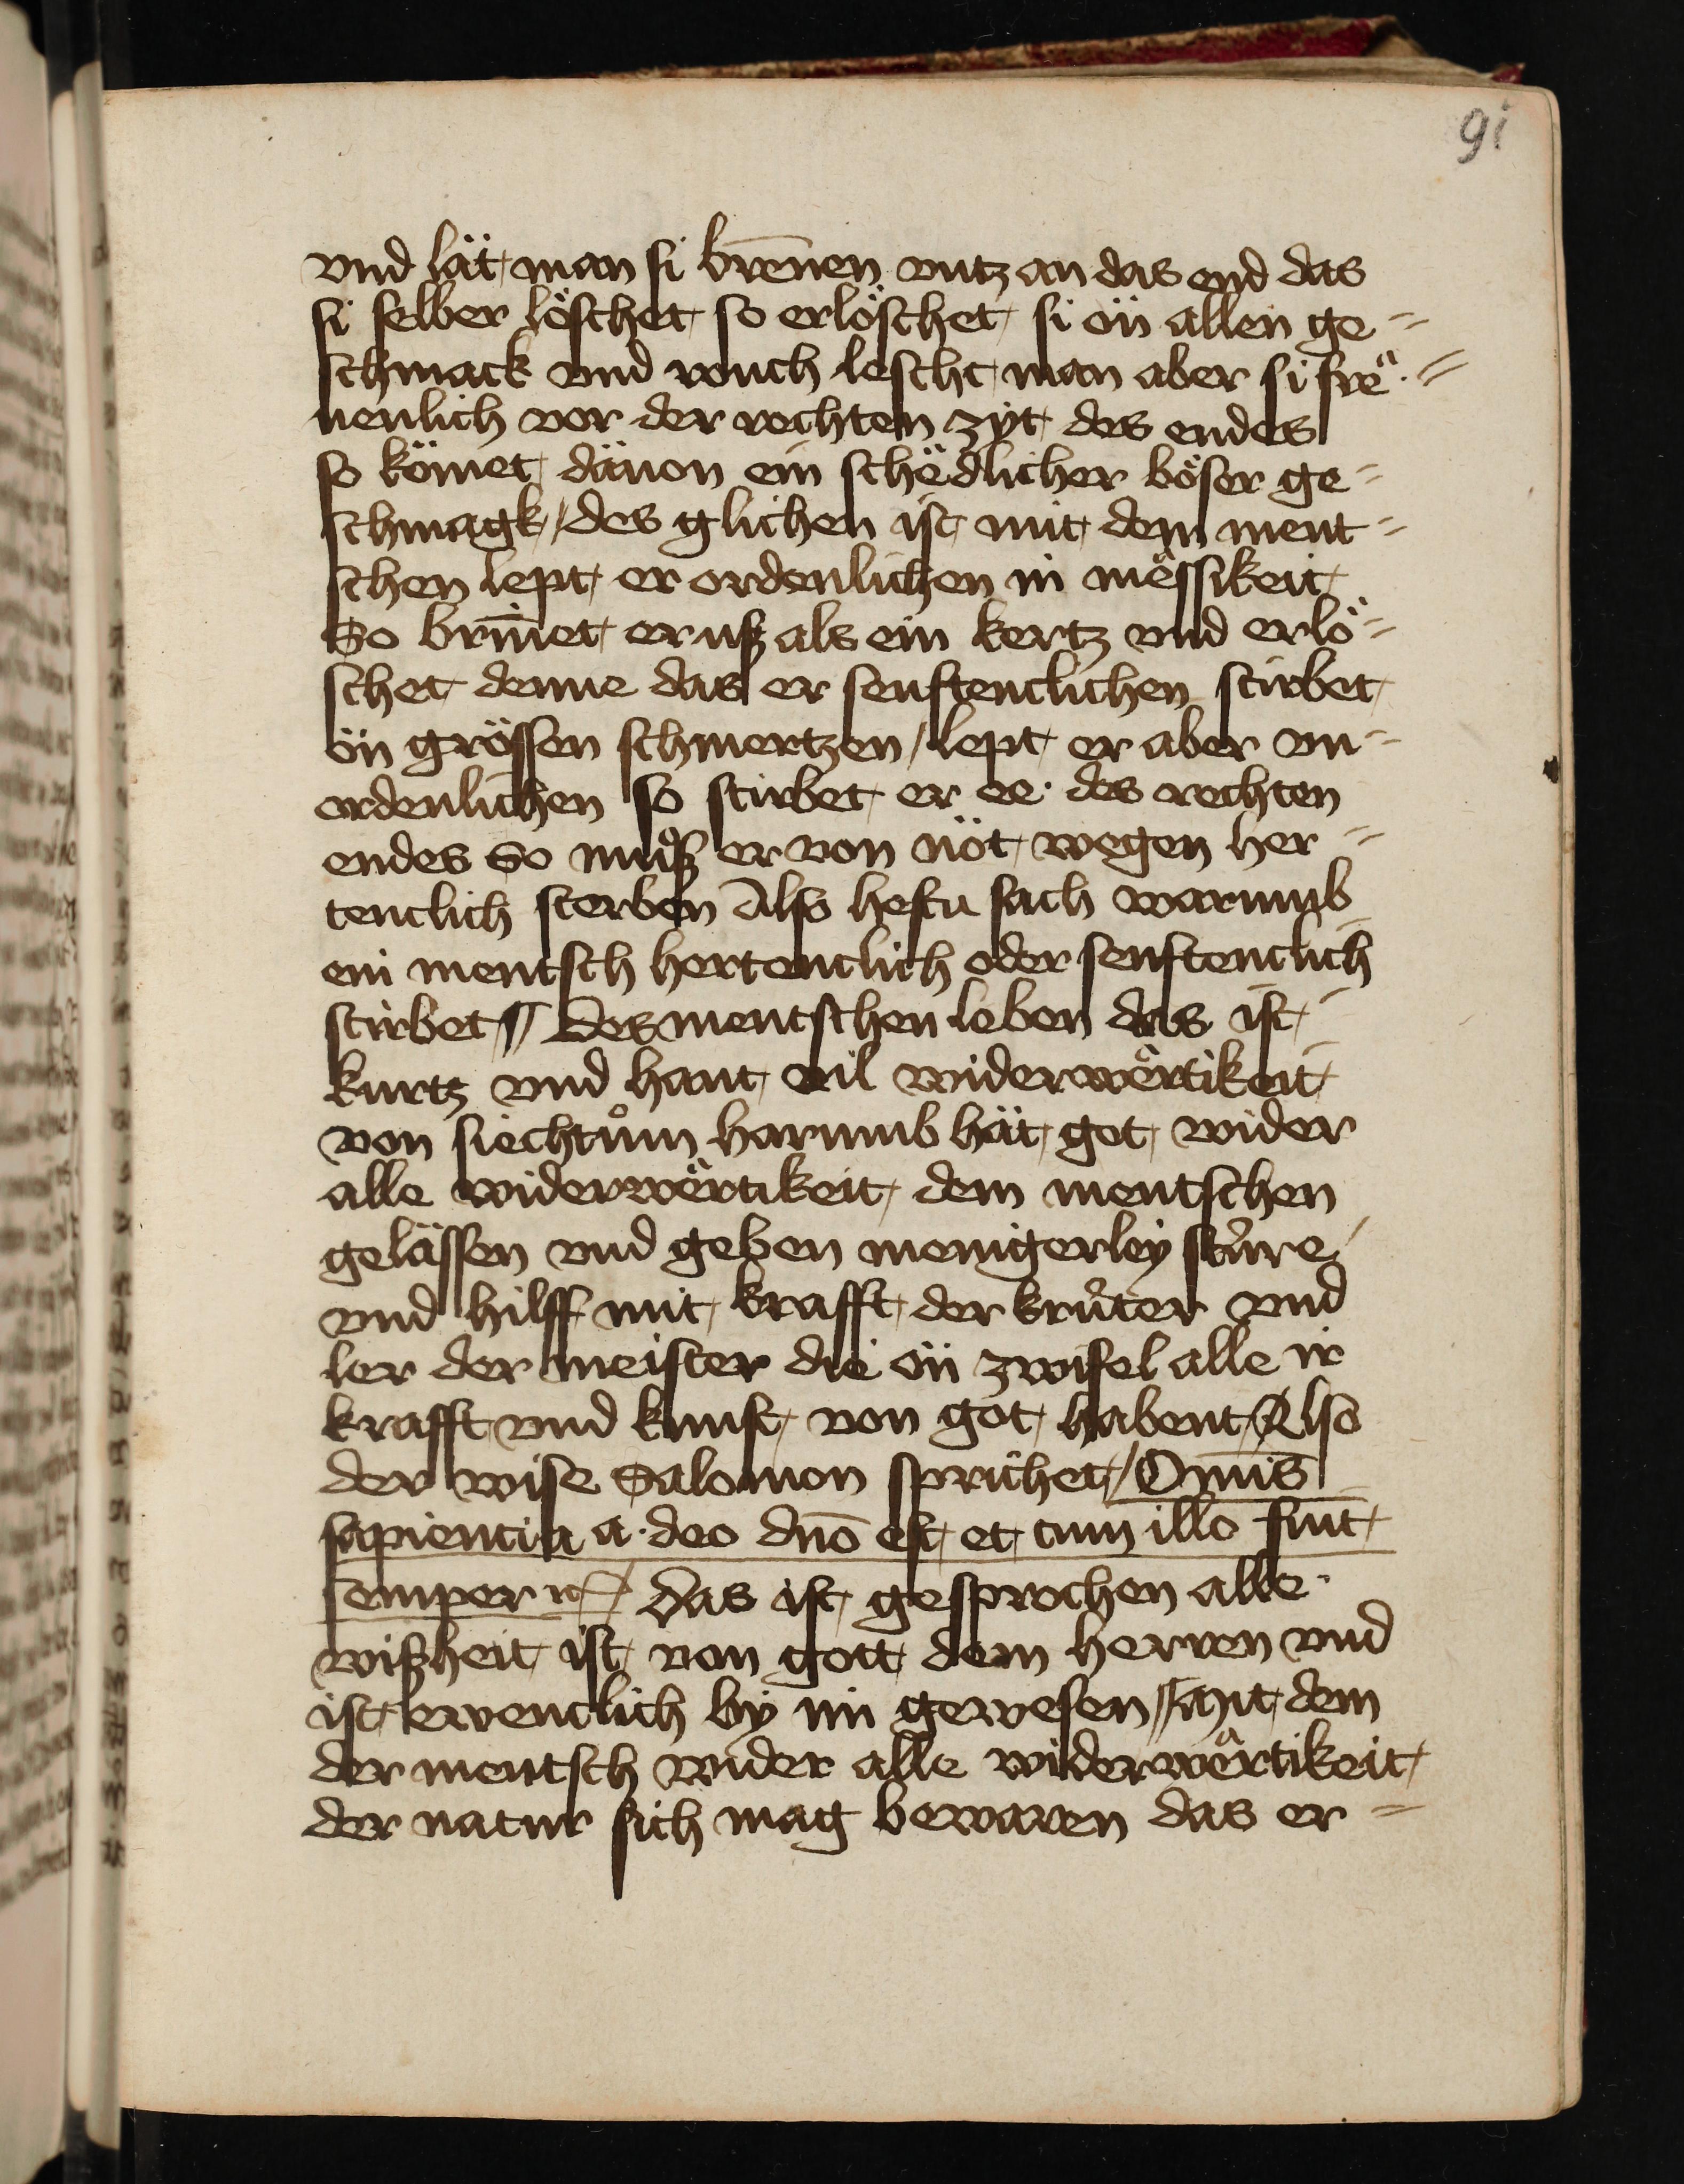 91
vnd lät man si brēnen vntz an das end das
si selber löschet so erlöschet si ön allen ge=
schmack vnd rouch lescht man aber si fre=
uenlich vor der rechten zÿt des endes
so kömet däuon ein schëdlicher böser ge=
schmagk / des glichen ist mit dem ment=
schen lept er ordenlichen in mëssikeit
So brīnet er uß als ein kertz vnd erlö=
schet denne das er senftenclichen stirbet
ön grössen schmertzen / lept er aber vn=
ordenlichen so stirbet er ee des rechten
endes So můß er von nöt wegen her=
tenclich sterben Also hestu sach warumb
ein mentsch hertenclich oder senftenclich
stirbet // Des mentschen leben das ist
kurtz vnd haut vil widerwërtikeit
von siechtům harumb hät got wider
alle widerwërtikeit dem mentschen
gelässen vnd geben menigerley stůre
vnd hilff mit krafft der krůter vnd
ler der meister die ön zwifel alle ir
krafft vnd kunst von got habent Also
der wise Salomon sprichet / Omīs
sapientia a deo dno̅ est et cum illo fuit
semper rc̄ / das ist gesprochen alle
wißheit ist von gott dem herren vnd
ist ewenclich by im gewesen // mit dem
der mentsch wider alle widerwërtikeit
der natur sich mag bewaren das er =